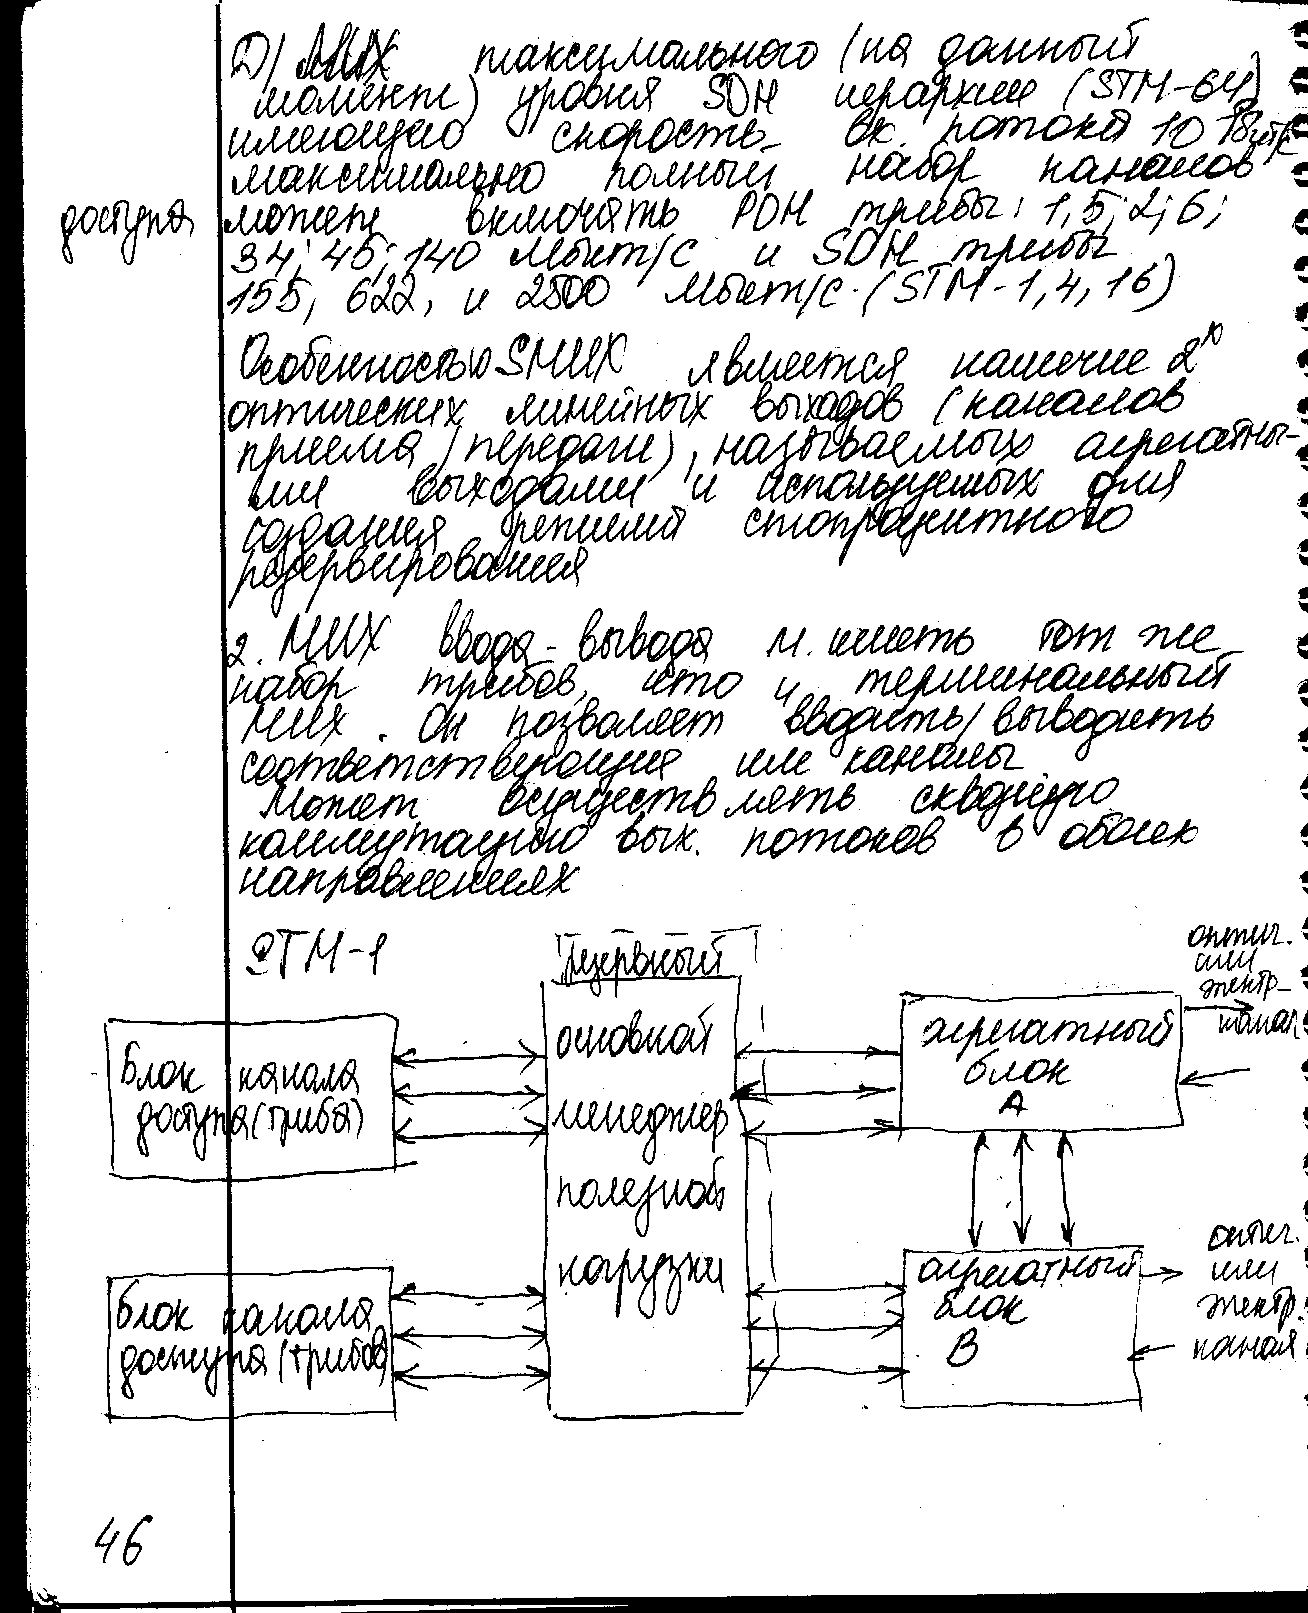 D) MUX максимального (на данный
момент) уровня SDH иерархии (STM-64)
имеющего скорость вх. потока 10 Гбит/с
максимально полный набор каналов
доступа может включать PDH трибы: 1,5; 2; 6;
34; 45; 140 Мбит/с и SDH трибы
155, 622, и 2500 Мбит/с. (STM-1,4,16)
Особенностью SMUX является наличие 2х
оптических линейных выходов (каналов
приема/передачи), называемых агрегатны-
ми выходами и используемых для
создания режима стопроцентного
резервирования
2. MUX ввода-вывода м. иметь тот же
набор трибов, что и терминальный
MUX. Он позволяет вводить/выводить
соответствующие им каналы
Может осуществлять сквозную
коммутацию вых. потоков в обоих
направлениях
STM-1
Резервный
основной
менеджер
полезной
нагрузки
Блок канала
доступа (триба)
Блок канала
доступа (трибов)
агрегатный
блок
A
оптич.
или
электр-
канал
агрегатный
блок
B
оптич.
или
электр.
канал
46